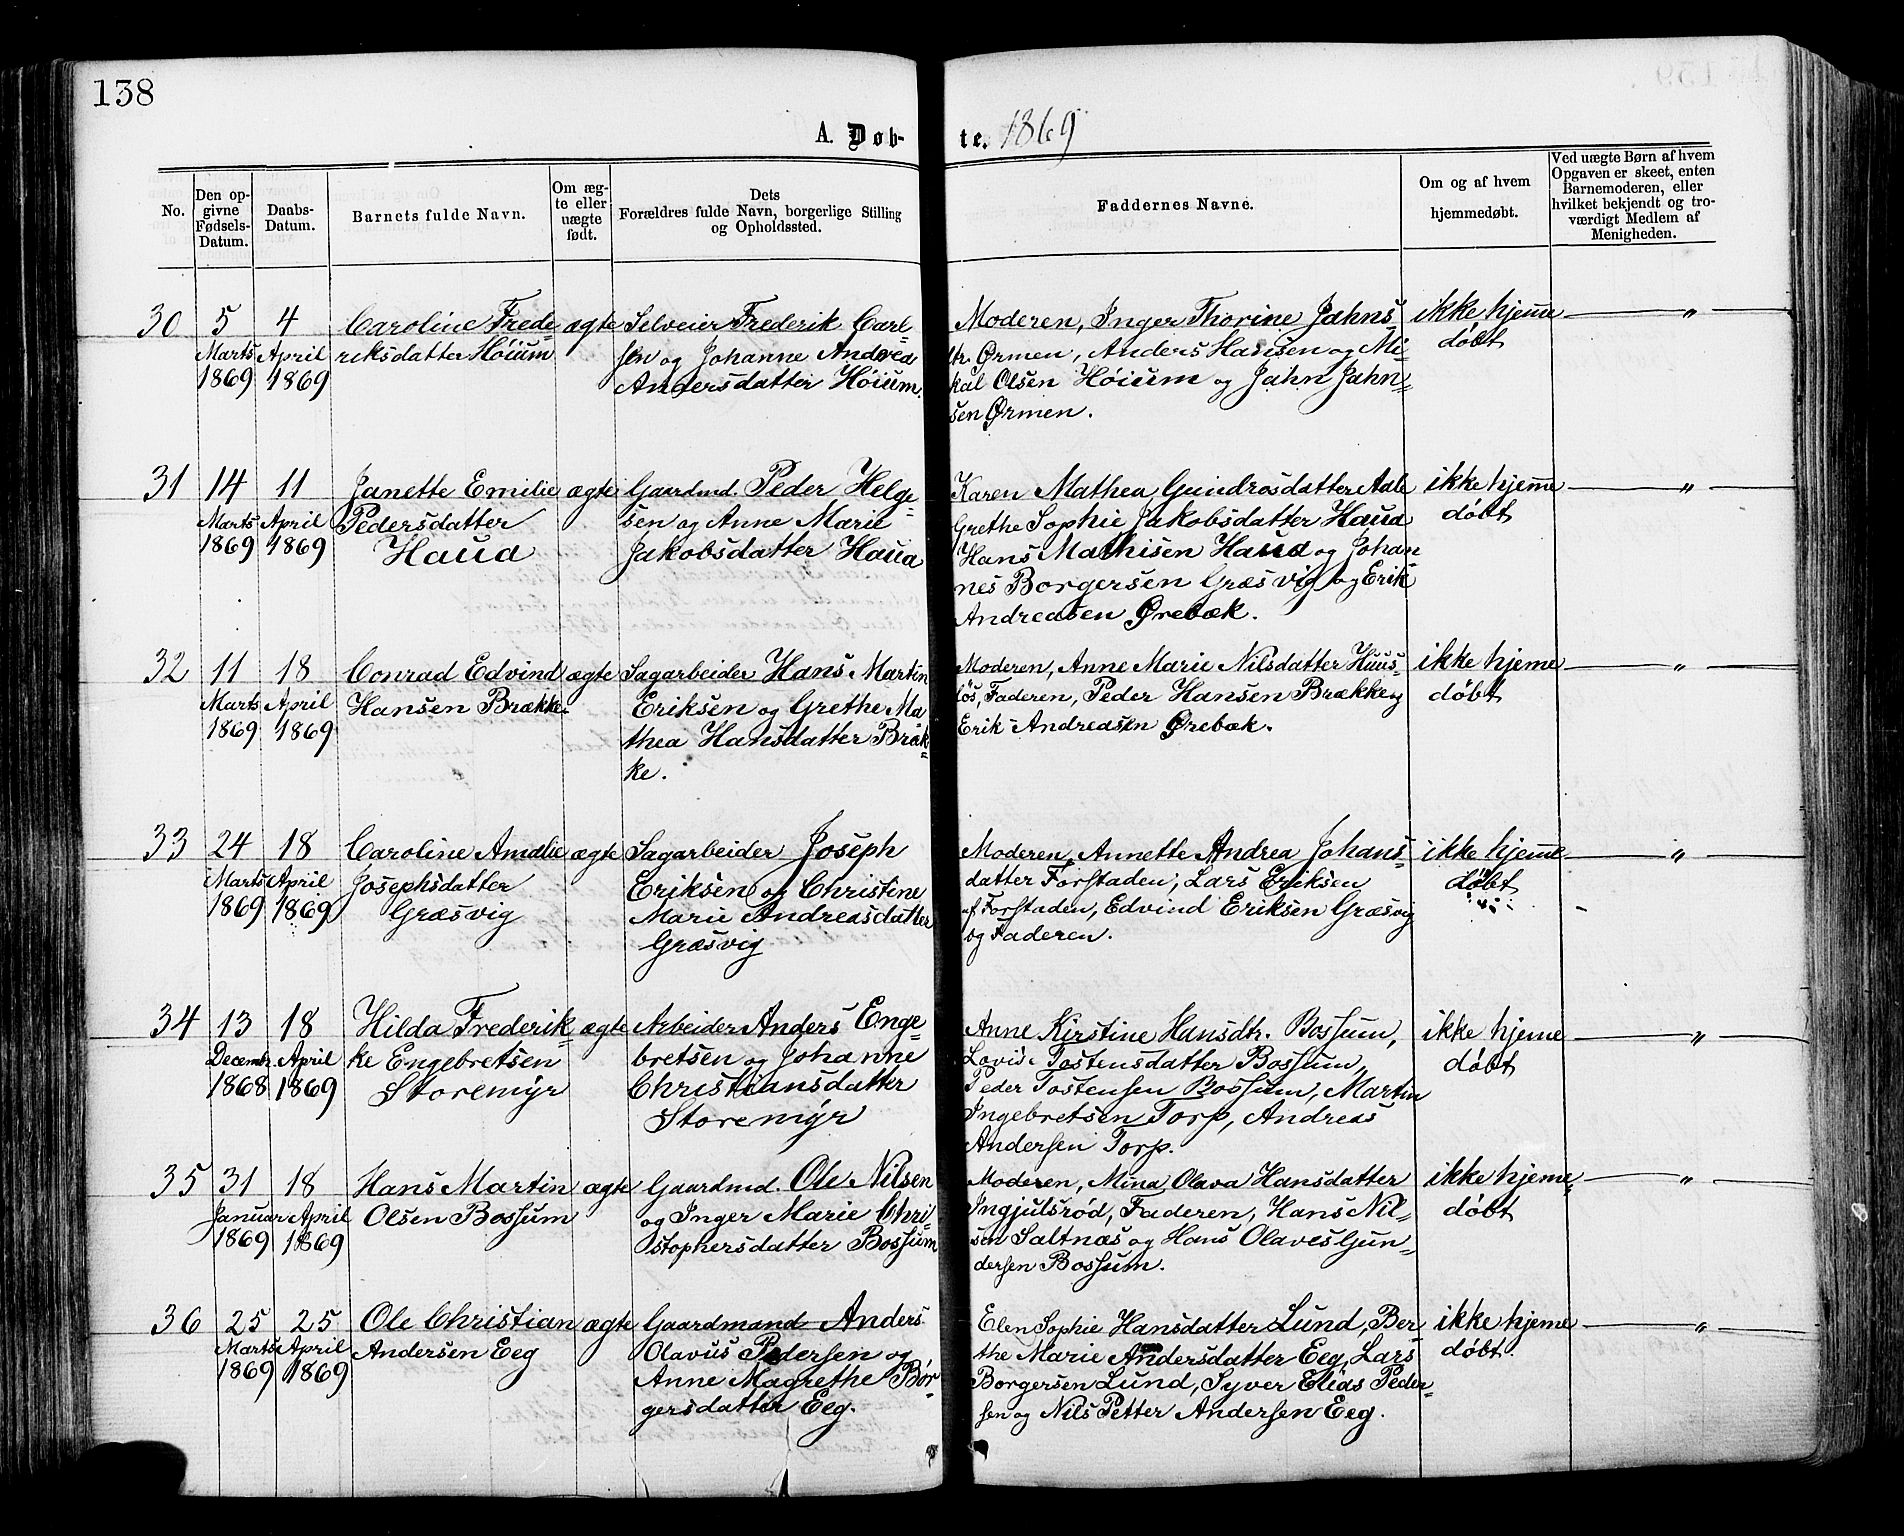 138
A. Døb-
te. 1869
No.
Den op-
givne
Fødsels-
Datum.
Daabs-
Datum.
Barnets fulde Navn.
Om æg-
te eller
uægte
født.
Dets
Forældres fulde Navn, borgerlige Stilling
og Opholdssted.
Faddernes Navne.
Om og af hvem
hjemmedøbt.
Ved uægte Børn af hvem
Opgaven er skeet, enten
Barnemoderen, eller
hvilket bekjendt og tro-
værdigt Medlem af
Menigheden.
30
5
Marts
1869
4
April
1869
Caroline Frede-
riksdatter Høium
ægte
Selveier Frederik Carl-
sen og Johanne Andrea
Andersdatter Høium.
Moderen, Inger Thorine Jahns-
dtr. Ørmen, Anders Hansen og Mi-
kal Olsen Høium og Jahn Jahn-
sen Ørmen.
ikke hjeme
døbt
"
31
14
Marts
1869
11
April
1869
Janette Emilie
Pedersdatter
Haua
ægte
Gaardmd. Peder Helge-
sen og Anne Marie
Jakobsdatter Haua
Karen Mathea Gundrosdatter Aale
Grethe Sophie Jakobsdatter Haua
Hans Mathisen Haua og Johan-
nes Borgersen Græsvig og Erik
Andreasen Ørebæk.
ikke hjeme
døbt
"
32
11
Marts
1869
18
April
1869
Conrad Edvind
Hansen Brække
ægte
Sagarbeider Hans Martin
Eriksen og Grethe Ma
thea Hansdatter Bræk-
ke.
Moderen, Anne Marie Nilsdatter Huus-
løs, Faderen, Peder Hansen Brække og
Erik Andreasen Ørebæk.
ikke hjeme
døbt
"
33
24
Marts
1869
18
April
1869
Caroline Amalie
Josephsdatter
Græsvig
ægte
Sagarbeider Joseph
Eriksen og Christine
Marie Andreasdatter
Græsvig
Moderen, Annette Andrea Johans-
datter Forstaden, Lars Eriksen
af Forstaden, Edvind Eriksen Græsvig
og Faderen.
ikke hjeme
døbt
"
34
13
Decembr.
1868
18
April
1869
Hilda Frederik-
ke Engebretsen
Storemyr
ægte
Arbeider Anders Enge-
bretsen og Johanne
Christiansdatter
Storemyr
Anne Kirstine Hansdtr. Bossum,
Lovise Tostensdatter Bossum,
Peder Tostensen Bossum, Martin
Ingebretsen Torp, Andreas
Andersen Torp.
ikke hjeme
døbt
"
35
31
Januar
1869
18
April
1869
Hans Martin
Olsen Bossum
ægte
Gaardmd. Ole Nilsen
og Inger Marie Chri-
stophersdatter Bossum
Moderen, Mina Olava Hansdatter
Ingjulsrød, Faderen, Hans Nil-
sen Saltnæs og Hans Olaves Gun-
dersen Bossum.
ikke hjeme-
døbt
"
36
25
Marts
1869
25
April
1869
Ole Christian
Andersen Eeg
ægte
Gaardmand Anders
Olavus Pedersen og
Anne Magrethe Bør-
gersdatter Eeg.
Elen Sophie Hansdatter Lund, Ber
the Marie Andersdatter Eeg, Lars
Borgersen Lund, Syver Elias Peder-
sen og Nils Petter Andersen Eeg.
ikke hjeme
døbt.
"